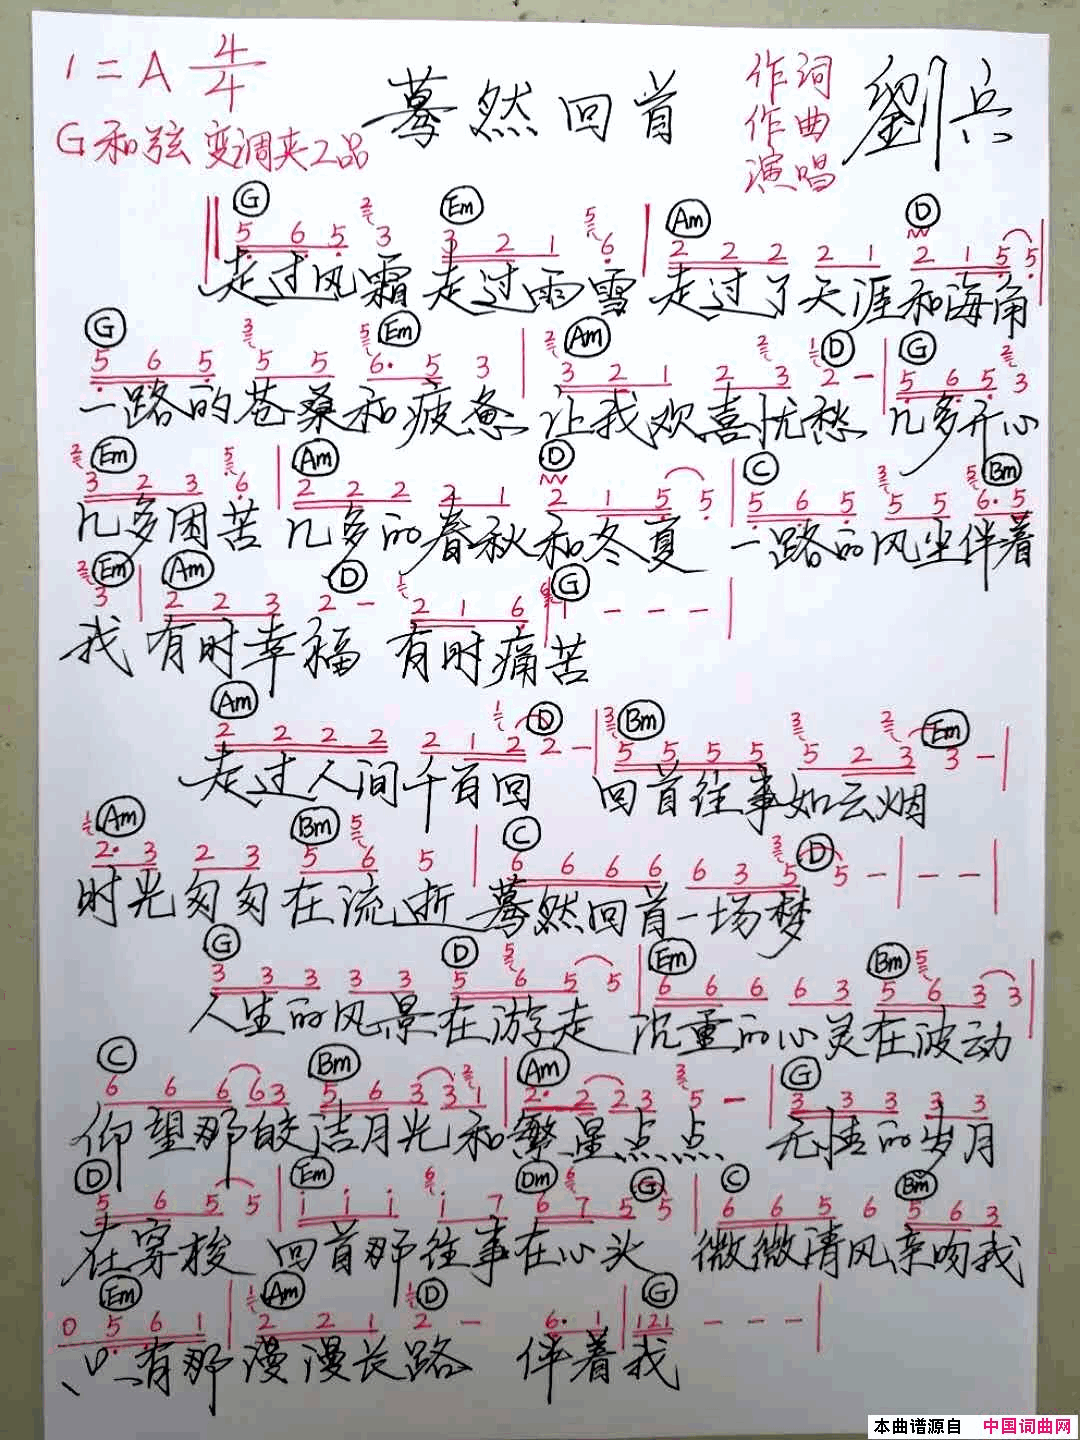 1=A 4/4
蓦然回首
作词
作曲
演唱
劉兵
G和弦 变调夹2品
G Em Am D
5 6 5 3 3 2 1 6 2 2 2 2 1 2 1 5 5
走过风霜 走过雨雪 走过了天涯和海角
G Em Am D G
5 6 5 5 5 6· 5 3 3 2 1 2 3 2 - 5 6 5 3
一路的苍桑和疲惫 让我欢喜忧愁 几多开心
Em Am D C Bm
3 2 3 6 2 2 2 2 1 2 1 5 5 5 6 5 5 5 6· 5
几多困苦 几多的春秋和冬夏 一路的风尘伴着
Em Am D G
3 2 2 3 2 - 2 1 6 1 - - -
我 有时幸福 有时痛苦
Am D Bm Em
2 2 2 2 2 1 2 2 - 5 5 5 5 5 2 3 3 -
走过人间千百回 回首往事如云烟
Am Bm C D
2· 3 2 3 5 6 5 6 6 6 6 6 3 5 5 - - -
时光匆匆在流逝 蓦然回首一场梦
G D Em Bm
3 3 3 3 3 5 6 5 5 6 6 6 6 3 5 6 3 3
人生的风景在游走 沉重的心灵在波动
C Bm Am G
6 6 6 6 3 5 6 3 3 1 2· 2 2 3 5 - 3 3 3 3 3
仰望那皎洁月光和繁星点点 无情的岁月
D Em Dm G C Bm
5 6 5 5 i i i i 7 6 7 5 5 6 6 5 6 5 6 3
在穿梭 回首那往事在心头 微微清风亲吻我
Em Am D G
0 5 6 1 2 2 1 2 - 6· 1 1 2 1 - - -
只有那漫漫长路 伴着我
本曲谱源自 中国词曲网